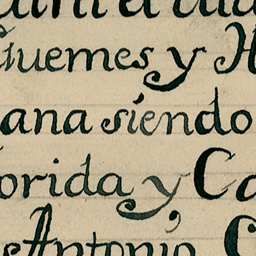 Guemes y H
ana siendo
orida y Ca
Antonio